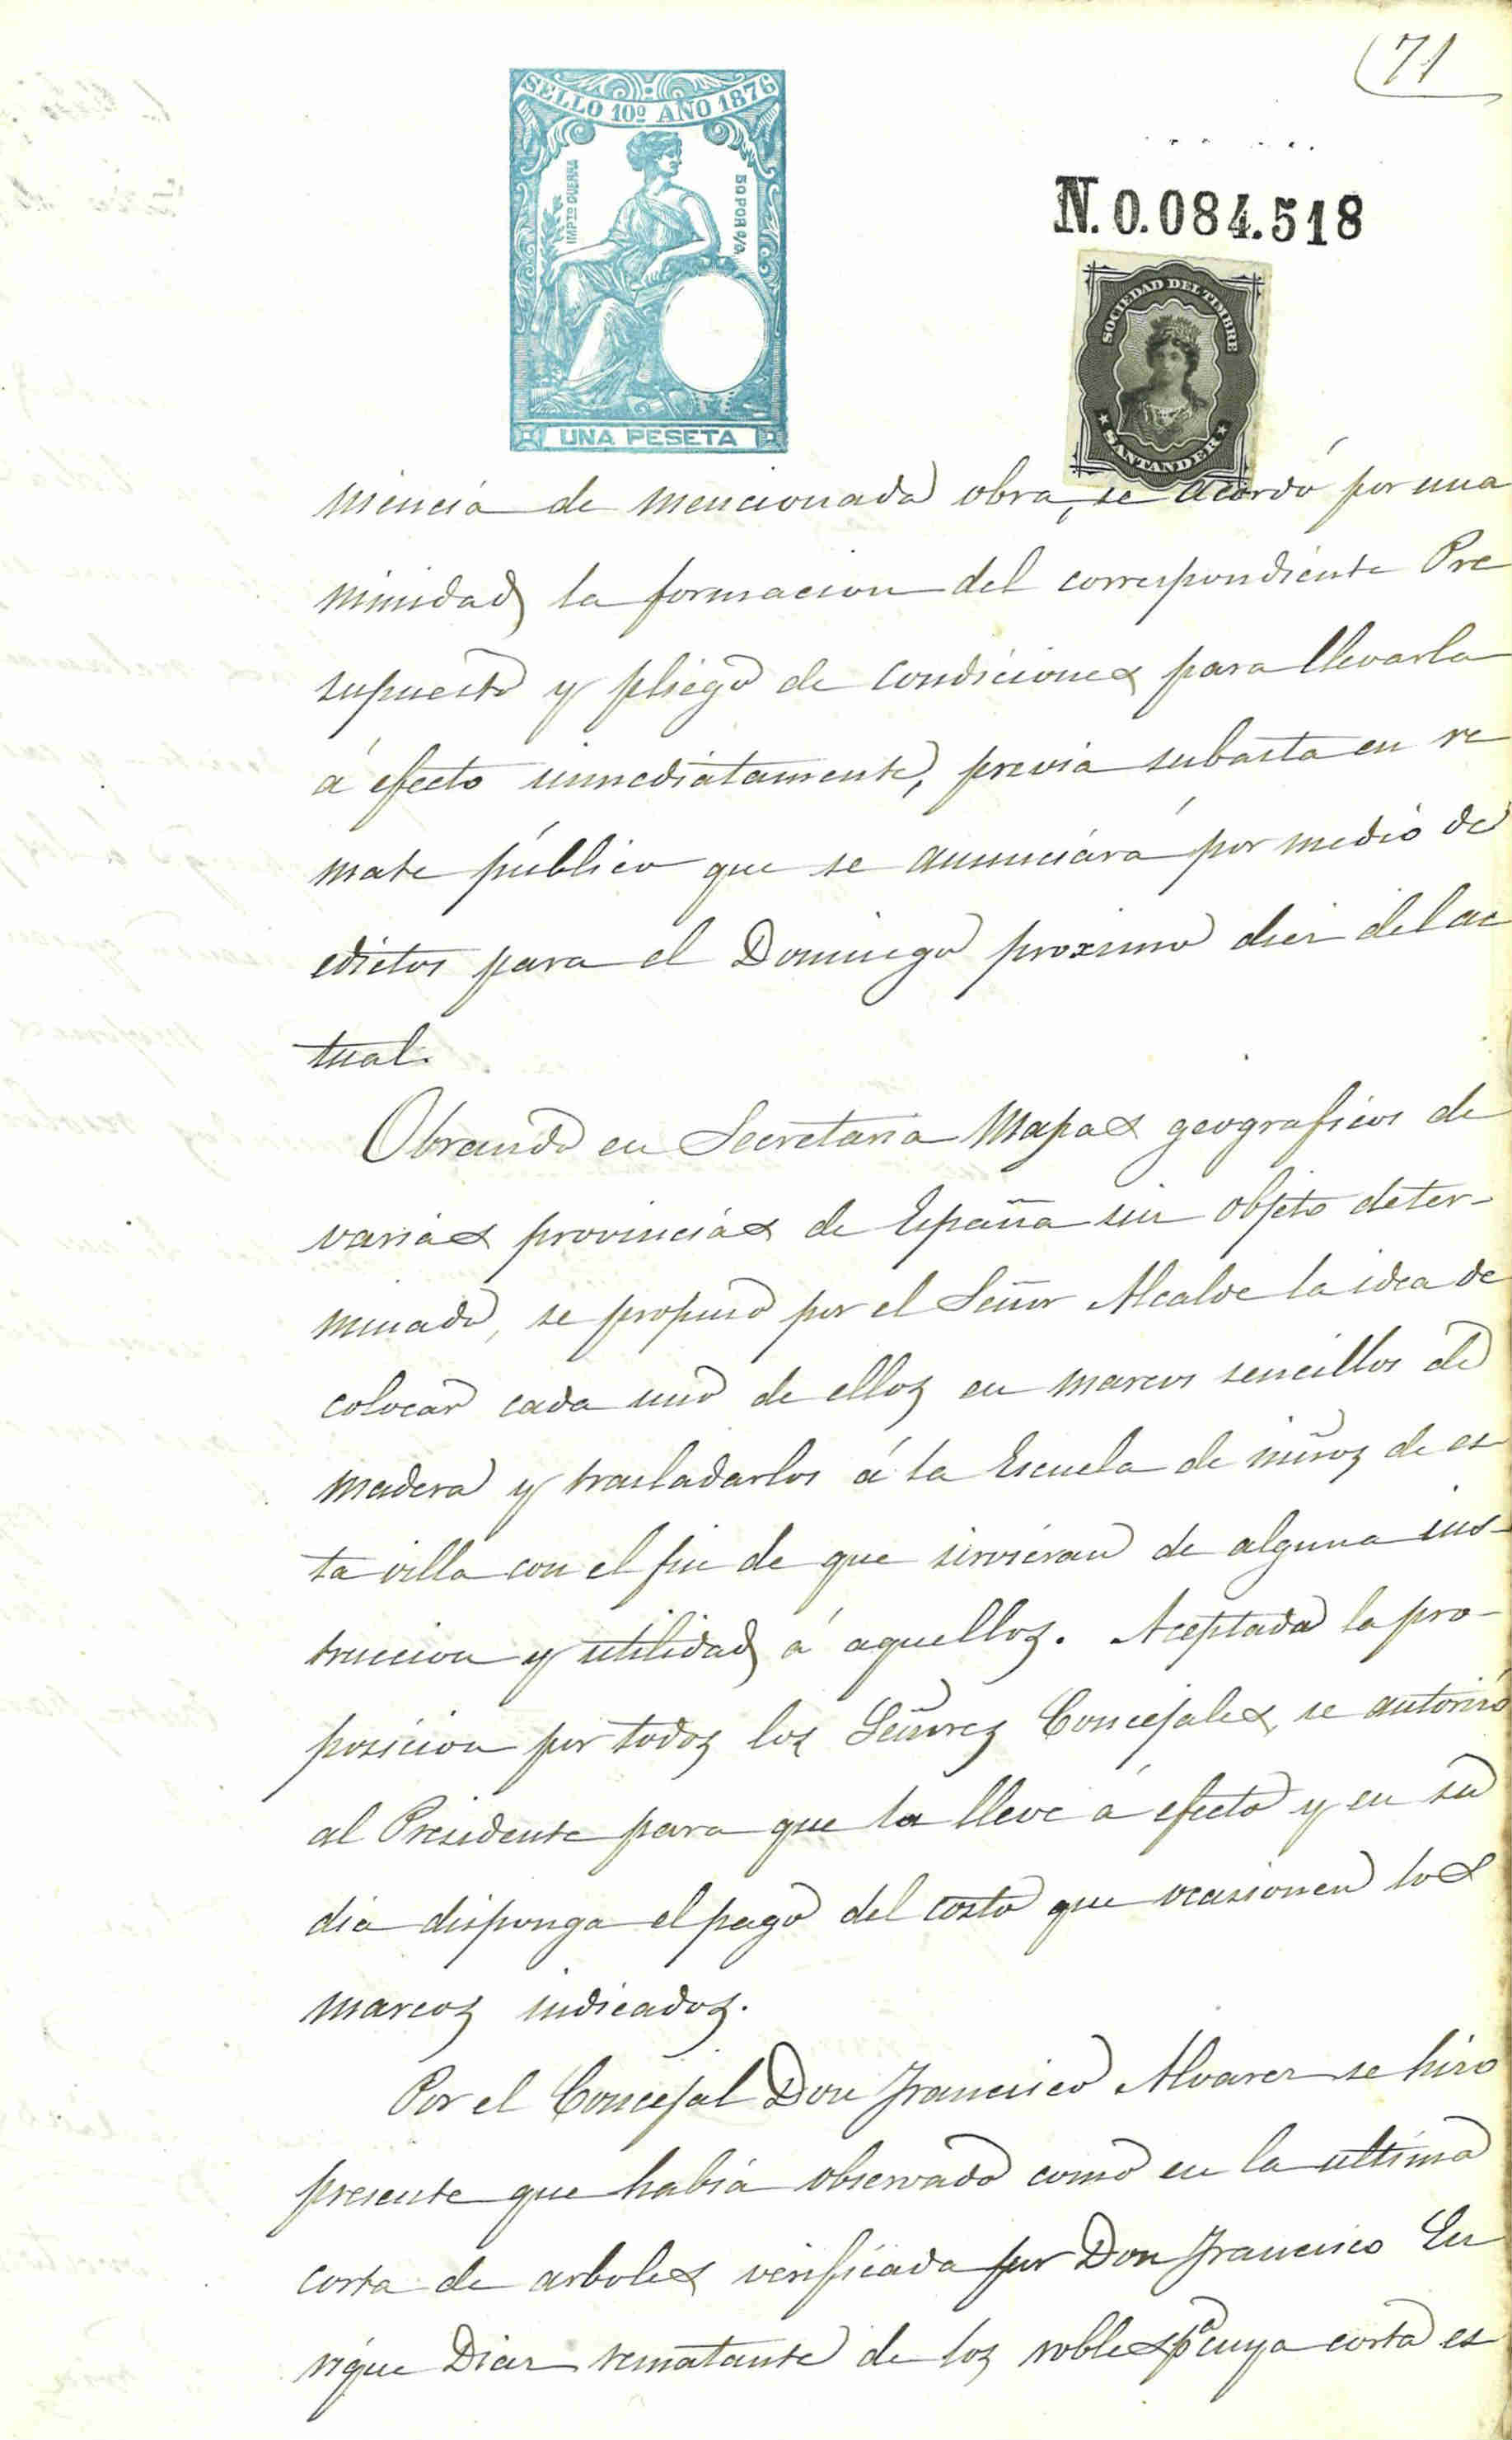 71
SELLO 10º AÑO 1876
IMPTO GUERRA
50 POR %
UNA PESETA
N. 0.084.518
SOCIEDAD DEL TIMBRE
SANTANDER
niencia de mencionada obra, se acordó por una
nimidad la formacion del correspondiente Pre
supuesto y pliego de condiciones para llevarla
á efecto inmediatamente, previa subasta en re
mate público que se anunciará por medio de
edictos para el Domingo proximo diez del ac
tual.
Obrando en Secretaria Mapas geograficos de
varias provincias de España sin objeto deter-
minado, se propuso por el Señor Alcalde la idea de
colocar cada uno de ellos en marcos sencillos de
madera y trasladarlos á la Escuela de niños de es
ta villa con el fin de que sirvieran de alguna ins-
truccion y utilidad á aquellos. Aceptada la pro-
posicion por todos los Señores Concejales, se autorizó
al Presidente para que la lleve á efecto y en su
dia disponga el pago del costo que ocasionen los
marcos indicados.
Por el Concejal Don Francisco Alvarez se hizo
presente que habia observado como en la ultima
corta de arboles verificada por Don Francisco En
rique Diaz rematante de los robles pª cuya corta es